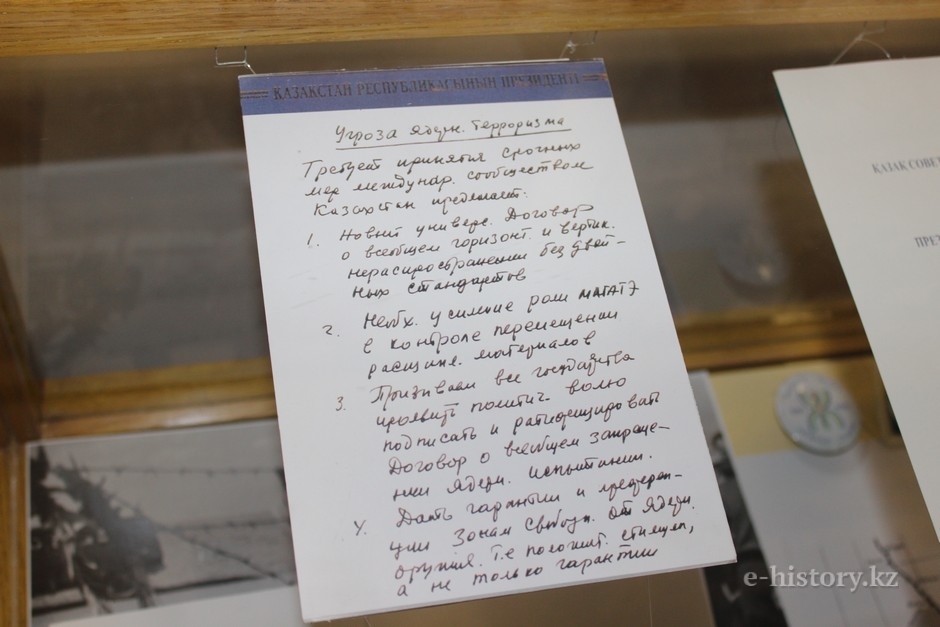 ҚАЗАҚСТАН РЕСПУБЛИКАСЫНЫҢ ПРЕЗИДЕНТІ
Угроза ядерн. терроризма
Требует принятия срочных
мер междунар. сообществом
Казахстан предлагает:
1. Новый универс. Договор
о всеобщем горизонт. и вертик.
нераспространении без двой-
ных стандартов
2. Необх. усиление роли МАГАТЭ
в контроле перемещении
расщепл. материалов
3. Призываем все государства
проявить политич. волю
подписать и ратифицировать
Договор о всеобщем запреще-
нии ядерн. испытаний.
4. Дать гарантии и преферен-
ции зонам свободн. от ядерн.
оружия. Т.е положит. стимул,
а не только гарантии
ҚАЗАҚ СОВЕ
ПРЕ
e-history.kz